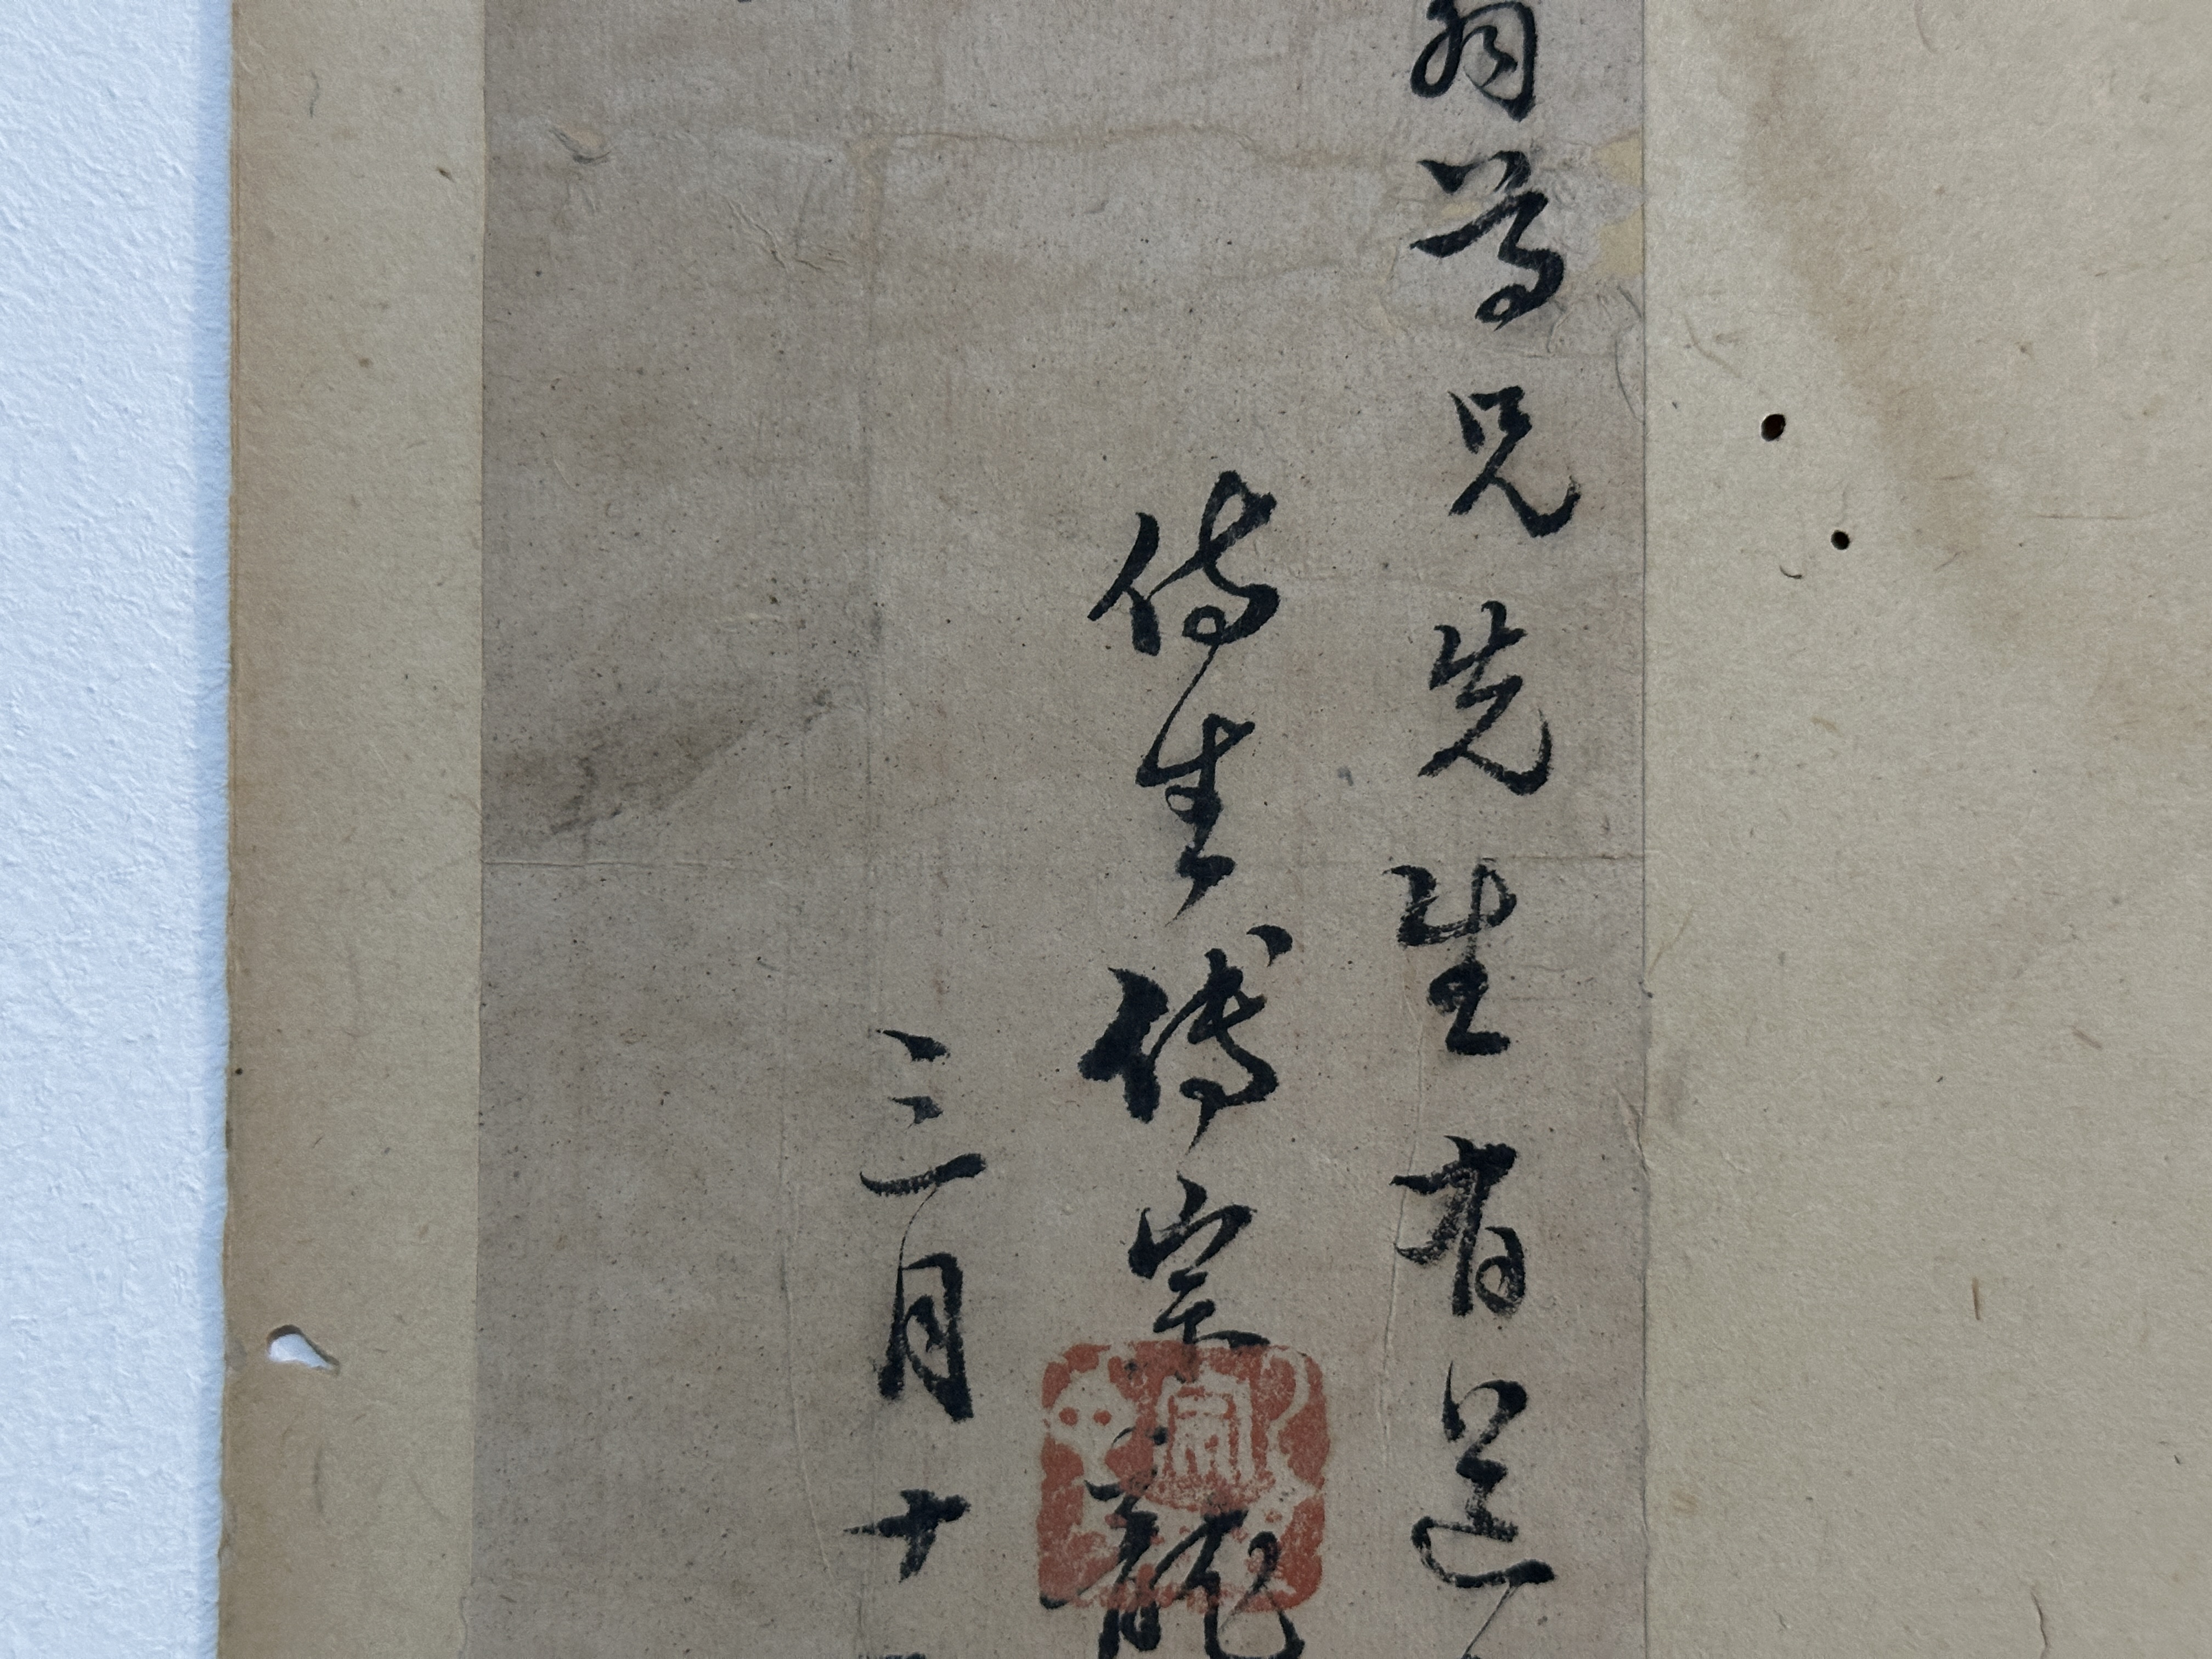 翁尊兄先生有道
侍生傅宗龍
三月十